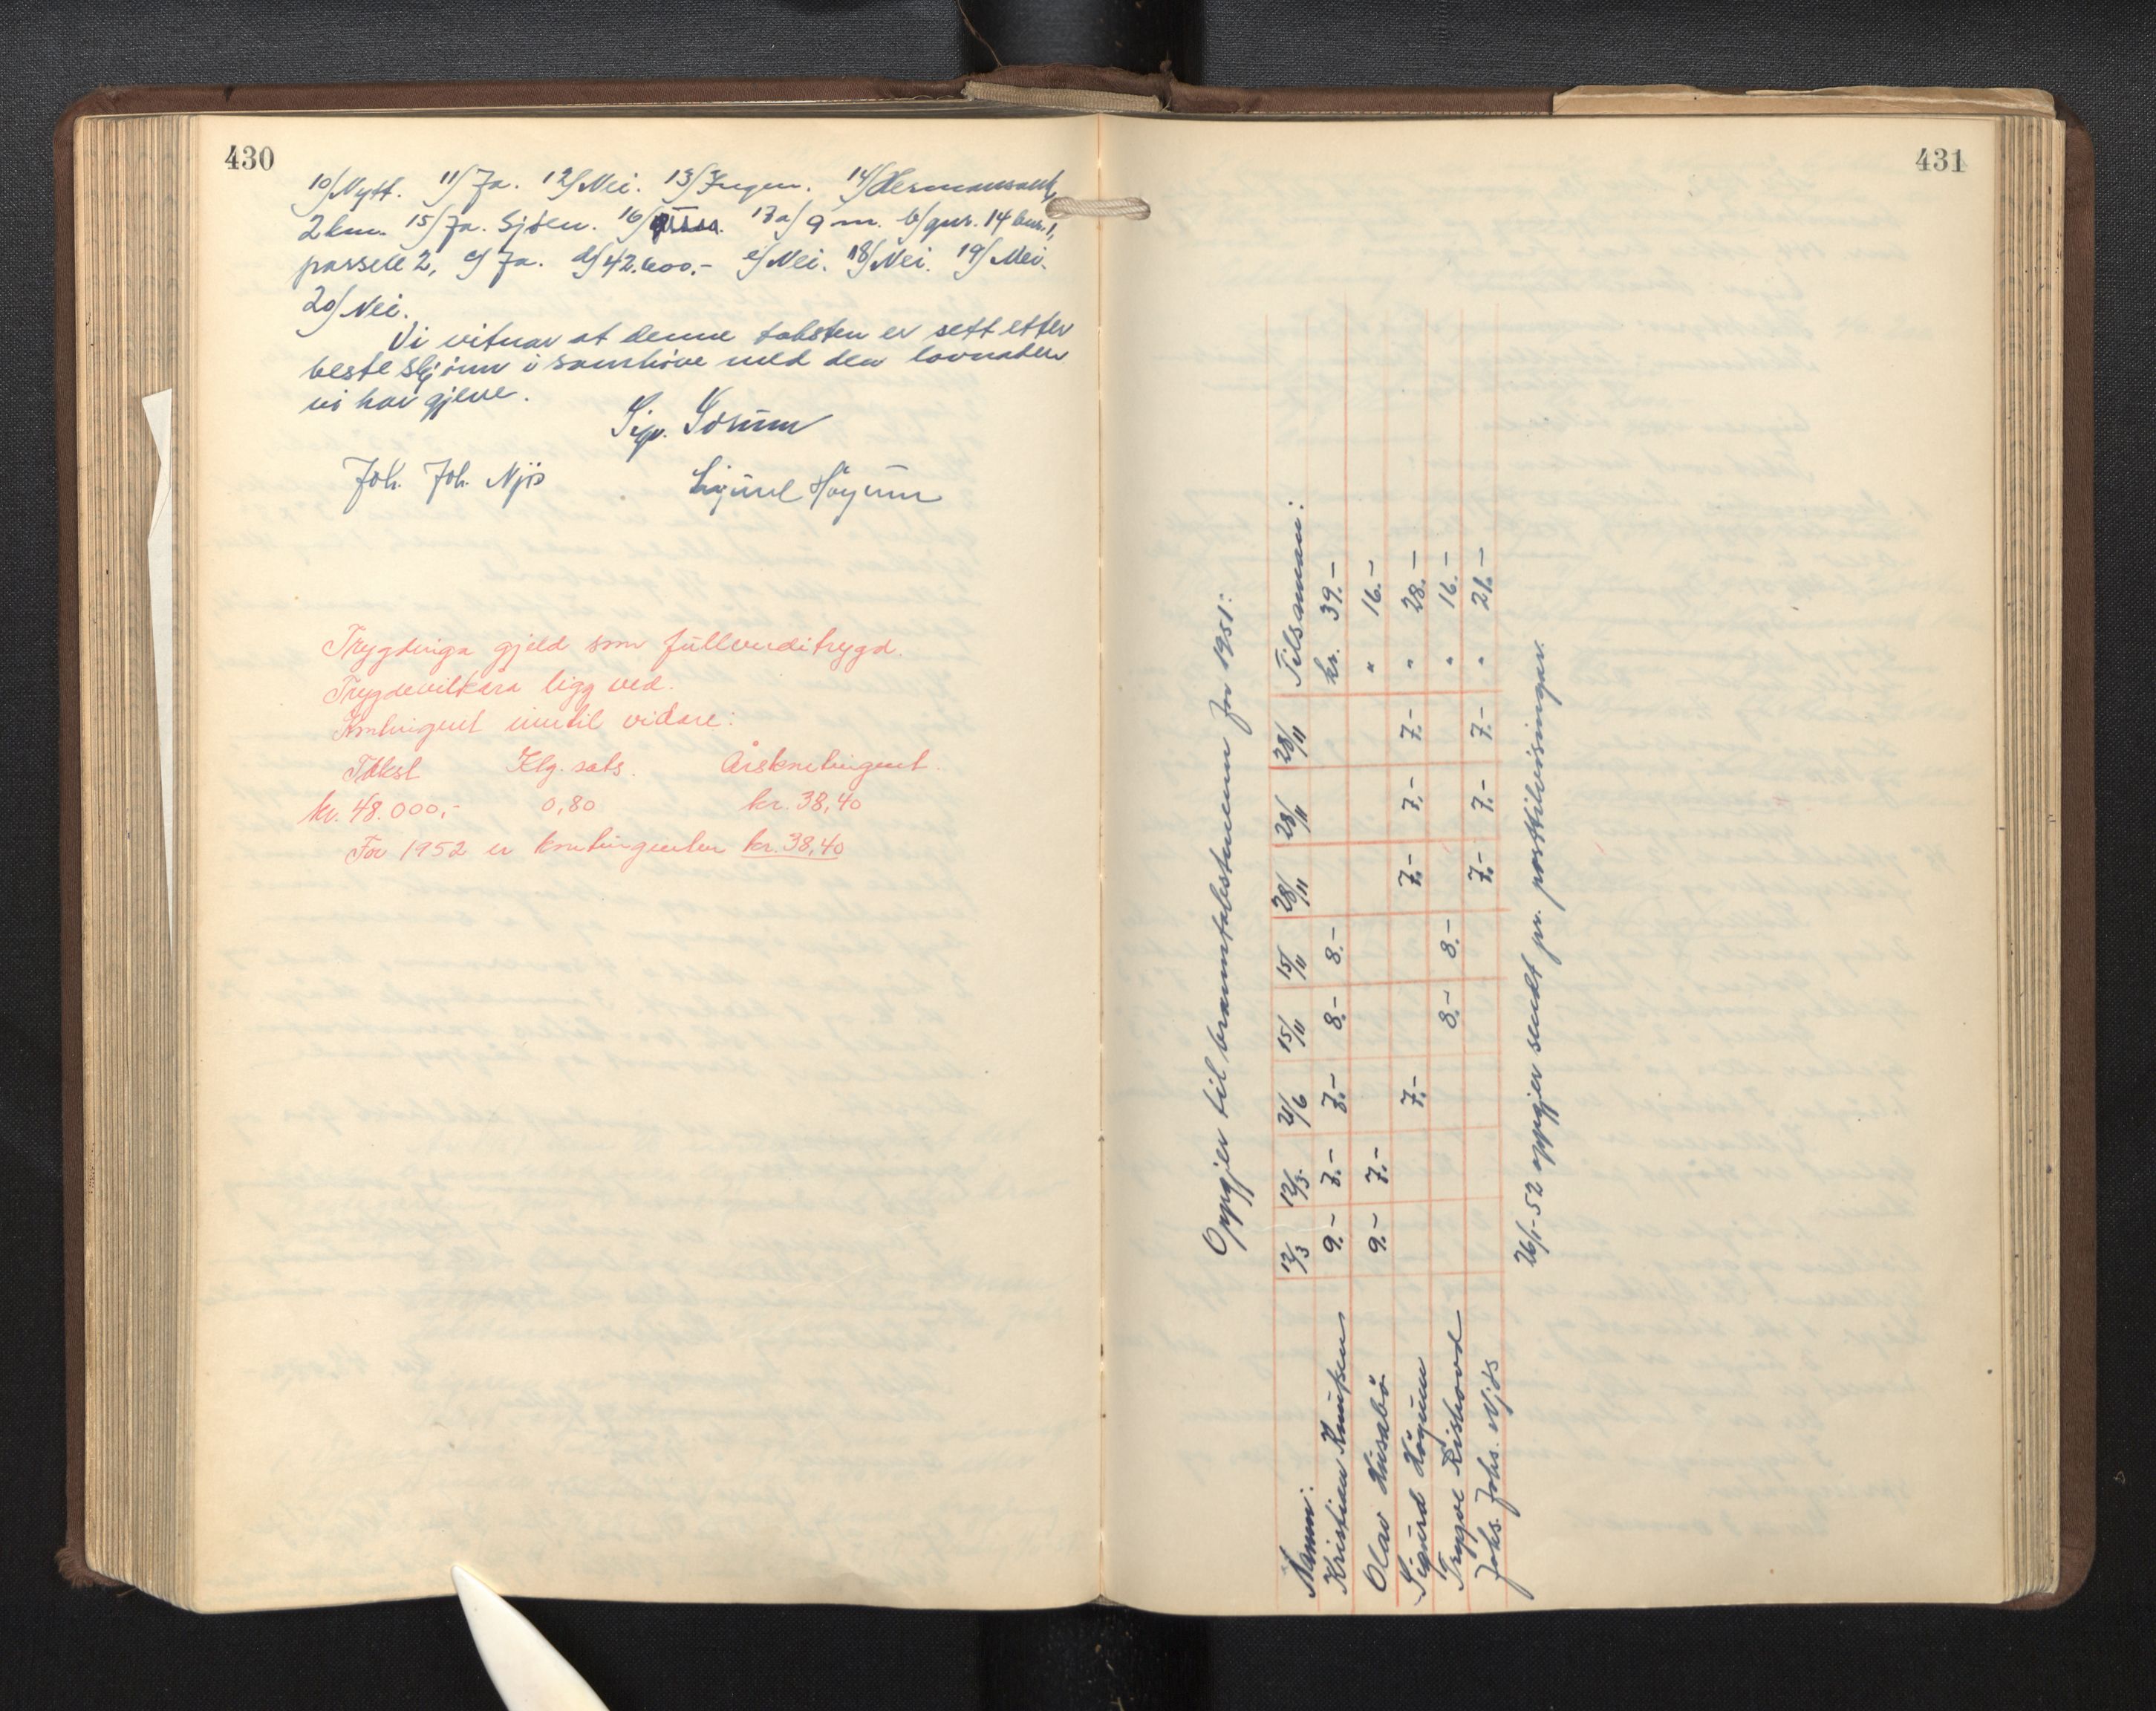 430
10/ Nytt. 11/ Ja. 12/ Nei. 13/ Ingen. 14/ Hermansverk,
2 km. 15/ Ja. Sjøen. 16/ 17a/ 9 m. b/ gnr. 14 bnr. 1,
parsell 2, c/ Ja. d/ 42.600.- e/ Nei. 18/ Nei. 19/ Nei.
20/ Nei.
Vi vitnar at denne taksten er sett etter
beste skjønn i samhøve med den lovnaden
vi har gjeve.
Joh. Joh. Njøs Sigurd Høyum
Trygdinga gjeld som fullverditrygd.
Trygdevilkåra ligg ved.
Kontingent inntil vidare:
Takst Klg. sats. Årskontingent.
kr. 48.000,- 0,80 kr. 38,40
For 1952 er kontingenten kr. 38,40
431
Oppgjer til branntakstmenn for 1951:
Namn: 12/3 12/3 21/6 15/11 15/11 28/11 28/11 28/11 Tilsaman:
Kristian Knutsen 9.- 7.- 7.- 8.- 8.- kr. 39.-
Olav Husabø 9.- 7.- " 16.-
Sigurd Høyum 7.- 7.- 7.- 7.- " 28.-
Trygve Risbrod 8.- 8.- " 16.-
Johs. Johs. Njøs 7.- 7.- 7.- " 21.-
26/1-52 oppgjer sendt pr. posttilvisningar.